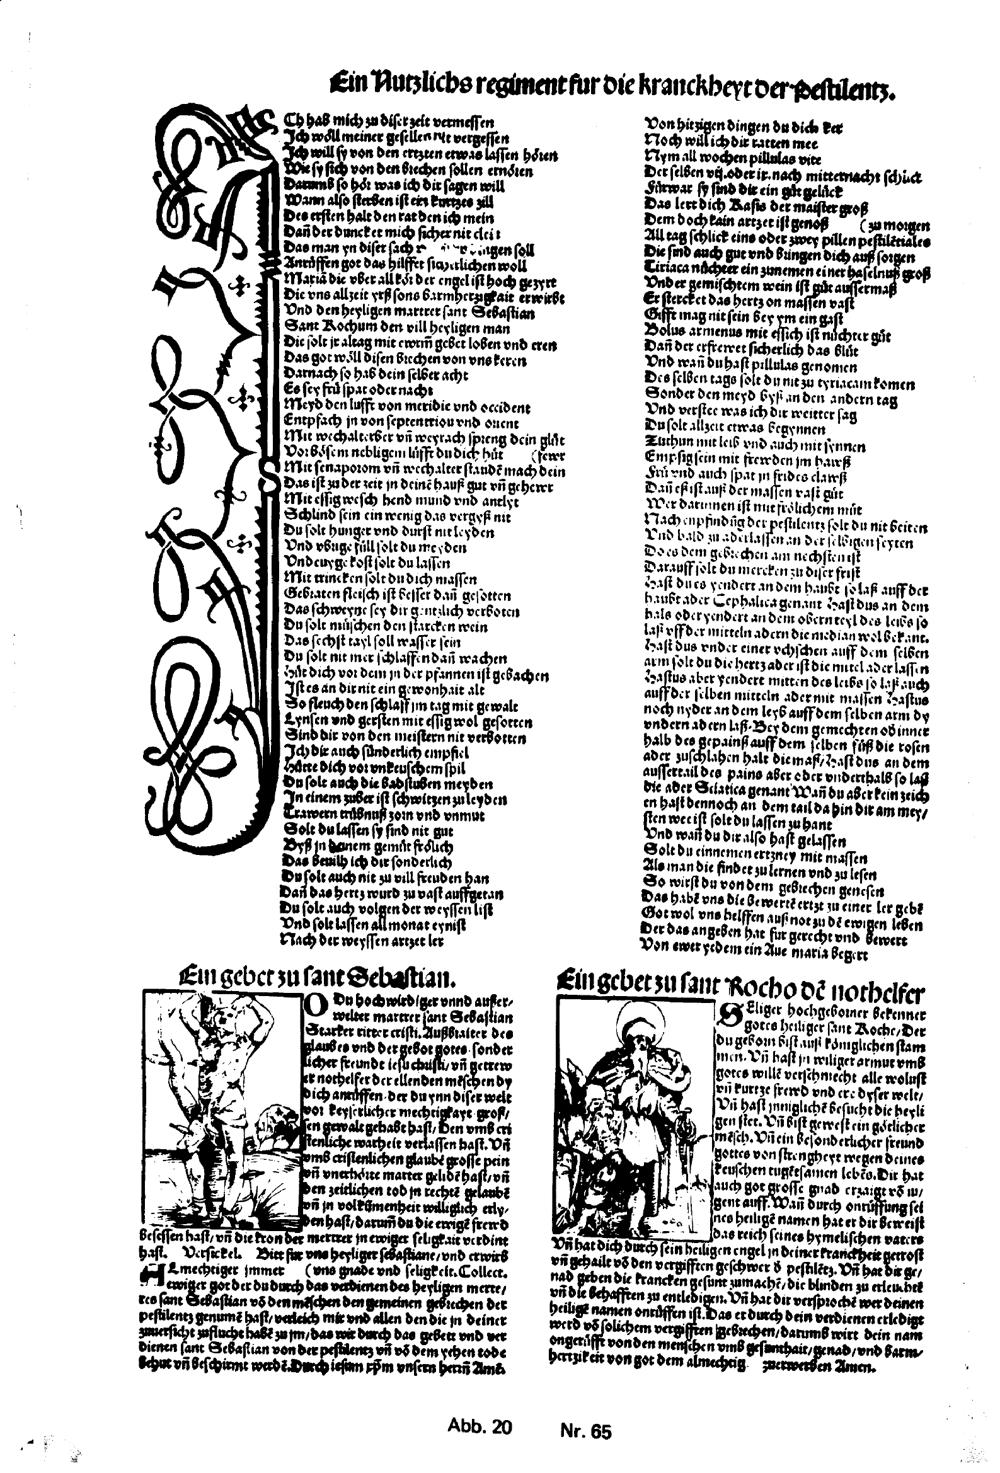 Ein Nutzlichs regiment fur die kranckheyt der Pestilentz.
Ch hab mich zu diser zeit vermessen
Ich wöll meiner gesellen nit vergessen
Ich will sy von den ertzten etwas lassen hören
Wie sy sich von den brechen sollen ernören
Darumb so hör was ich dir sagen will
Wann also sterben ist ein kurtzes zill
Des ersten halt den rat den ich mein
Dañ der duncket mich sicher nit clei
Das man yn diser sach gen soll
Anrüffen got das hilffet sicherlichen woll
Mariã die vber all kör der engel ist hoch gezyrt
Die vns allzeit yrß sons barmhertzigkait erwirbt
Vnd den heyligen martrer sant Sebastian
Sant Rochum den vill heyligen man
Die solt jr altag mit ewrm gebet loben vnd eren
Das got wöll disen brechen von vns keren
Darnach so hab dein selber acht
Es sey frü spat oder nacht
Meyd den lufft von meridie vnd occident
Entpfach jn von septentrion vnd orient
Mit wechalterber vñ weyrach spreng dein glüt
Vor bösem nebligem lüfft du dich hüt (fewr
Mit senaporom vñ wechalter staudẽ mach dein
Das ist zu der zeit in deinẽ hauß gut vñ gehewr
Mit essig wesch hend mund vnd antlyt
Schlind sein ein wenig das vergyß nit
Du solt hunger vnd durst nit leyden
Vnd vbrige füll solt du meyden
Vndeuyge kost solt du lassen
Mit trincken solt du dich massen
Gebraten fleisch ist besser dañ gesotten
Das schweyne sey dir gentzlich verboten
Du solt müschen den starcken wein
Das sechst tayl soll wasser sein
Du solt nit mer schlaffen dañ wachen
Hüt dich vor dem in der pfannen ist gebachen
Ist es an dir nit ein gewonhait alt
So fleuch den schlaff jm tag mit gewalt
Lynsen vnd gersten mit essig wol gesotten
Sind dir von den meistern nit verbotten
Ich dir auch sünderlich empfiel
Hütte dich vor vnkeuschem spil
Du solt auch die badstuben meyden
In einem zuber ist schwitzen zu leyden
Trawern trübnuß zorn vnd vnmut
Solt du lassen sy sind nit gut
Byß jn deinem gemüt frölich
Das beuilh ich dir sonderlich
Du solt auch nit zu vill freuden han
Dañ das hertz wurd zu vast auffgetan
Du solt auch volgen der weyssen list
Vnd solt lassen all monat eynist
Nach der weyssen artzet ler
Von hitzigen dingen du dich ker
Noch will ich dir ratten mee
Nym all wochen pillulas vite
Der selben vij. oder ix. nach mitternacht schlückt
Fürwar sy sind dir ein güt gelück
Das lert dich Rasis der maister groß
Dem doch kain artzet ist genoß (zu morgen
All tag schlick eins oder zwey pillen pestilẽtiales
Die sind auch gut vnd bringen dich auß sorgen
Tiriaca nüchter ein zunemen einer haselnuß groß
Vnder gemischtem wein ist güt aussermaß
Er stercket das hertz on massen vast
Gifft mag nit sein bey ym ein gast
Bolus armenus mit essich ist nüchter güt
Dañ der erfrewet sicherlich das blüt
Vnd wañ du hast pillulas genomen
Des selben tags solt du nit zu tyriacam komen
Sonder den meyd byß an den andern tag
Vnd verstee was ich dir weitter sag
Du solt allzeit etwas begynnen
Zuthun mit leib vnd auch mit synnen
Empsig sein mit frewden jm hawß
Frü vnd auch spat in frides clawß
Dañ eß ist auß der massen vast güt
Wer darinnen ist mit frölichem müt
Nach enpfindũg der pestilentz solt du nit beiten
Vnd bald zu aderlassen an der selbigen seyten
Do es dem gebrechen am nechsten ist
Darauff solt du mercken zu diser frist
Hast du es yendert an dem haubt so laß auff der
haubt ader Cephalica genant Hast dus an dem
hals oder yendert an dem obern teyl des leibs so
laß vff der mitteln adern die median wol bekant.
Hast dus vnder einer vchschen auff dem selben
arm solt du die hertz ader ist die mitel ader lassen
Hastus aber yendert mitten des leibs so laß auch
auff der selben mitteln ader mit massen Hastus
noch nyder an dem leyb auff dem selben arm dy
vndern adern laß. Bey dem gemechten ob inner
halb des gepainß auff dem selben füß die rosen
ader zuschlahen halt die maß/ Hast dus an dem
aussertail des pains aber oder vnderthalb so laß
die ader Sciatica genant Wañ du aber kein zeich
en hast dennoch an dem tail da hin dir am mey/
sten wee ist solt du lassen zu hant
Vnd wañ du dir also hast gelassen
Solt du einnemen ertzney mit massen
Als man die findet zu lernen vnd zu lesen
So wirst du von dem gebrechen genesen
Das habẽ vns die bewertẽ ertzt zu einer ler gebẽ
Got wol vns helffen auß not zu dẽ ewigen leben
Der das angeben hat fur gerecht vnd bewert
Von ewer yedem ein Aue maria begert
Ein gebet zu sant Sebastian.
O Du hochwirdiger vnnd außer/
welter martrer sant Sebastian
Starker ritter cristi. Außbraiter des
glaubes vnd der gebot gotes sonder
licher freundt iesu christi/ vñ getrew
er nothelfer der ellenden mẽschen dy
dich anrüffen. der du ynn diser welt
vor keyserlicher mechtigkayt groß/
sen gewalt gehabt hast/ Den vmb cri
stenliche warheit verlassen hast. Vñ
vmb cristenlichen glaubẽ grosse pein
vñ vnerhörte marter gelidẽ hast/ vñ
den zeitlichen tod in rechtẽ gelaubẽ
vñ jn volkũmenheit williglich erly/
den hast/ darum̃ du die ewigẽ frewd
besessen hast/ vñ die kron der mertrer jn ewiger seligkait verdint
hast. Versickel. Bitt für vns heyliger sebastiane/ vnd erwirb
ALmechtiger jmmer (vns gnade vnd seligkeit. Collect.
ewiger got der du durch das verdienen des heyligen mertre/
res sant Sebastian võ den mẽschen den gemeinen gebrechen der
pestilentz genumẽ hast/ verleich mir vnd allen den die jn deiner
zuuersicht zuflucht habẽ zu jm/ das wir durch das gebett vnd ver
dienen sant Sebastian von der pestilentz vñ võ dem yehen tode
behut vñ beschirmt werdẽ. Durch iesum xp̃m vnsern herrñ Amẽ.
Ein gebet zu sant Rocho dẽ nothelfer
SEliger hochgeborner bekenner
gottes heiliger sant Roche/ Der
du geborn bist auß königlichen stam
men. Vñ hast jn williger armut vmb
gotes willẽ verschmecht alle wolust
vñ kurtze frewd vnd ere dyser welt/
Vñ hast jnniglichẽ besucht die heyli
gen stet. Vñ bist gewest ein götlicher
mẽsch. Vñ ein besonderlicher freund
gottes von strengheyt wegen deines
keuschen tugẽtsamen lebẽs. Dir hat
auch got grosse gnad erzaigt võ iu/
gent auff. Wañ durch onrüffung sei
nes heilige namen hat er dir beweist
das reich seines hymelischen vaters
Vñ hat dich durch sein heiligen engel jn deiner kranckheit getrost
vñ gehailt võ den vergifften geschwer d pestilẽtz. Vñ hat dir ge/
nad geben die krancken gesunt zumachẽ/ die blinden zu erleuchtẽ
vñ die behafften zu entledigen. Vñ hat dir versprochẽ wer deinen
heiligẽ namen onrüffen ist. Das er durch dein verdienen erledigt
werd võ solichem vergifften gebrechen/ darumb wirt dein nam
ongerüfft von den menschen vmb gesunthait/ genad/ vnd barm/
hertzikeit von got dem almechtig zuerwerben Amen.
Abb. 20 Nr. 65